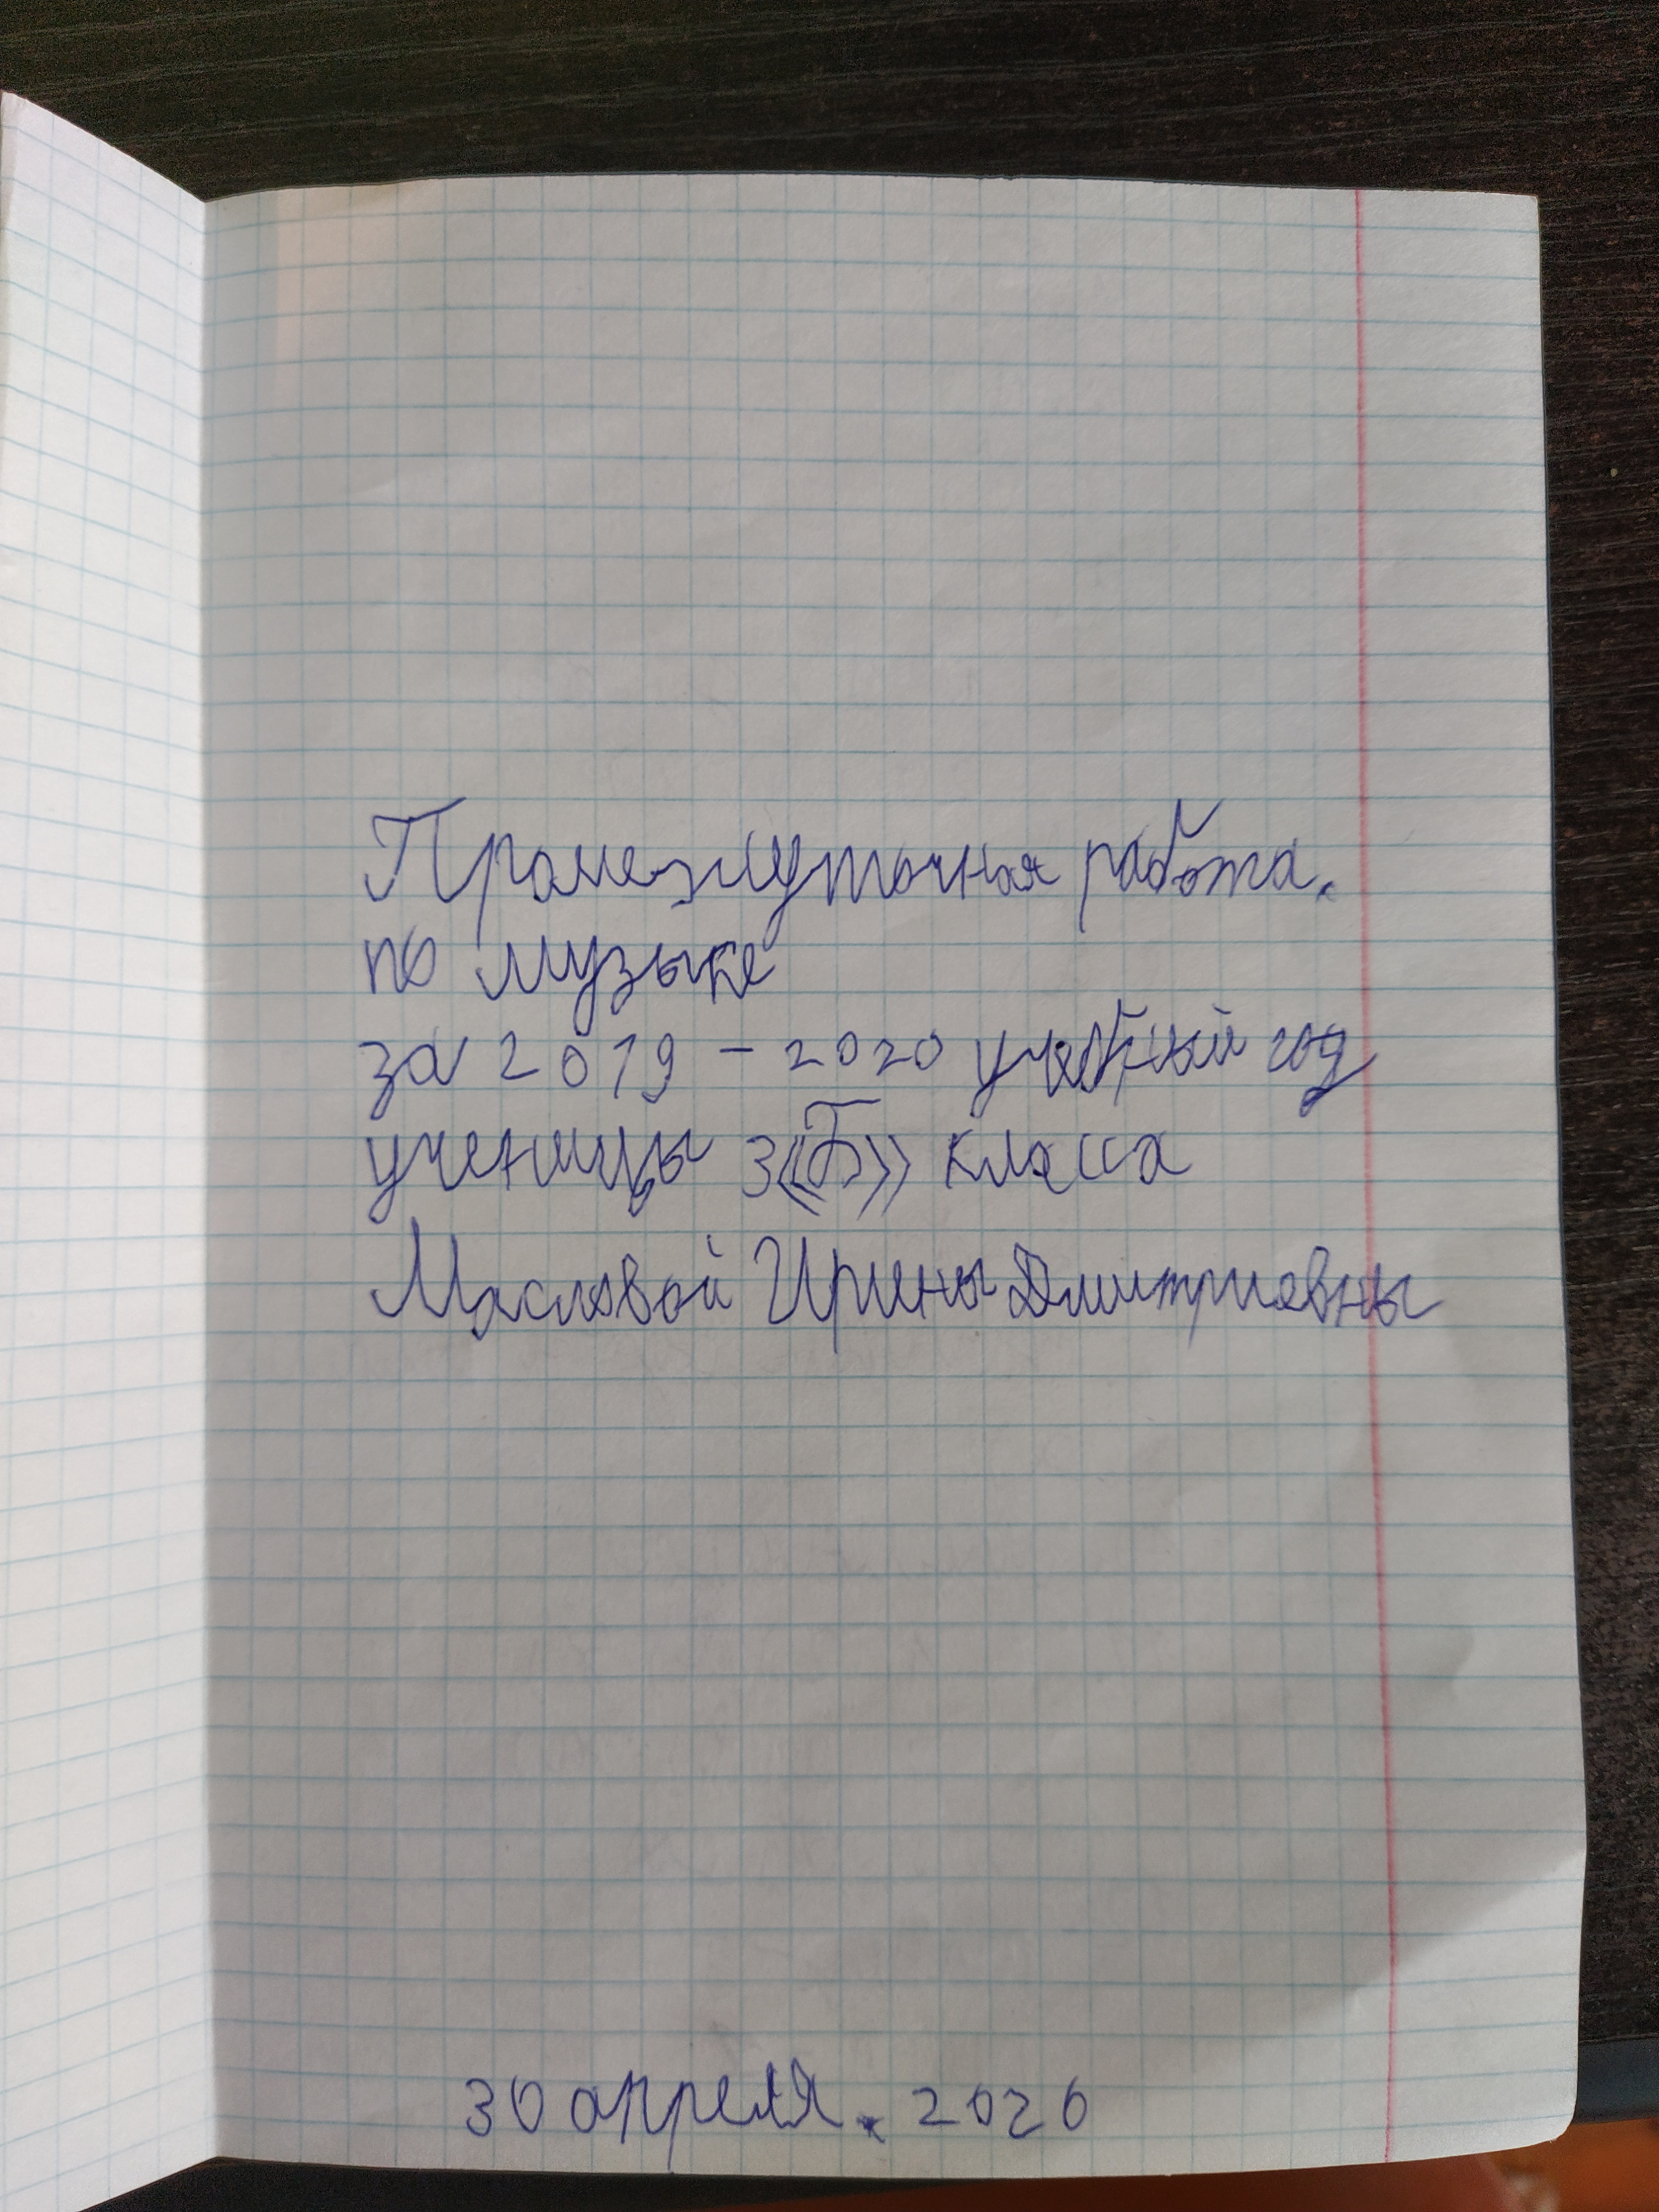 Промежуточная работа.
по музыке
за 2019 - 2020 учебный год
ученицы 3«Б» класса
Масловой Ирины Дмитриевны
30 апреля. 2020